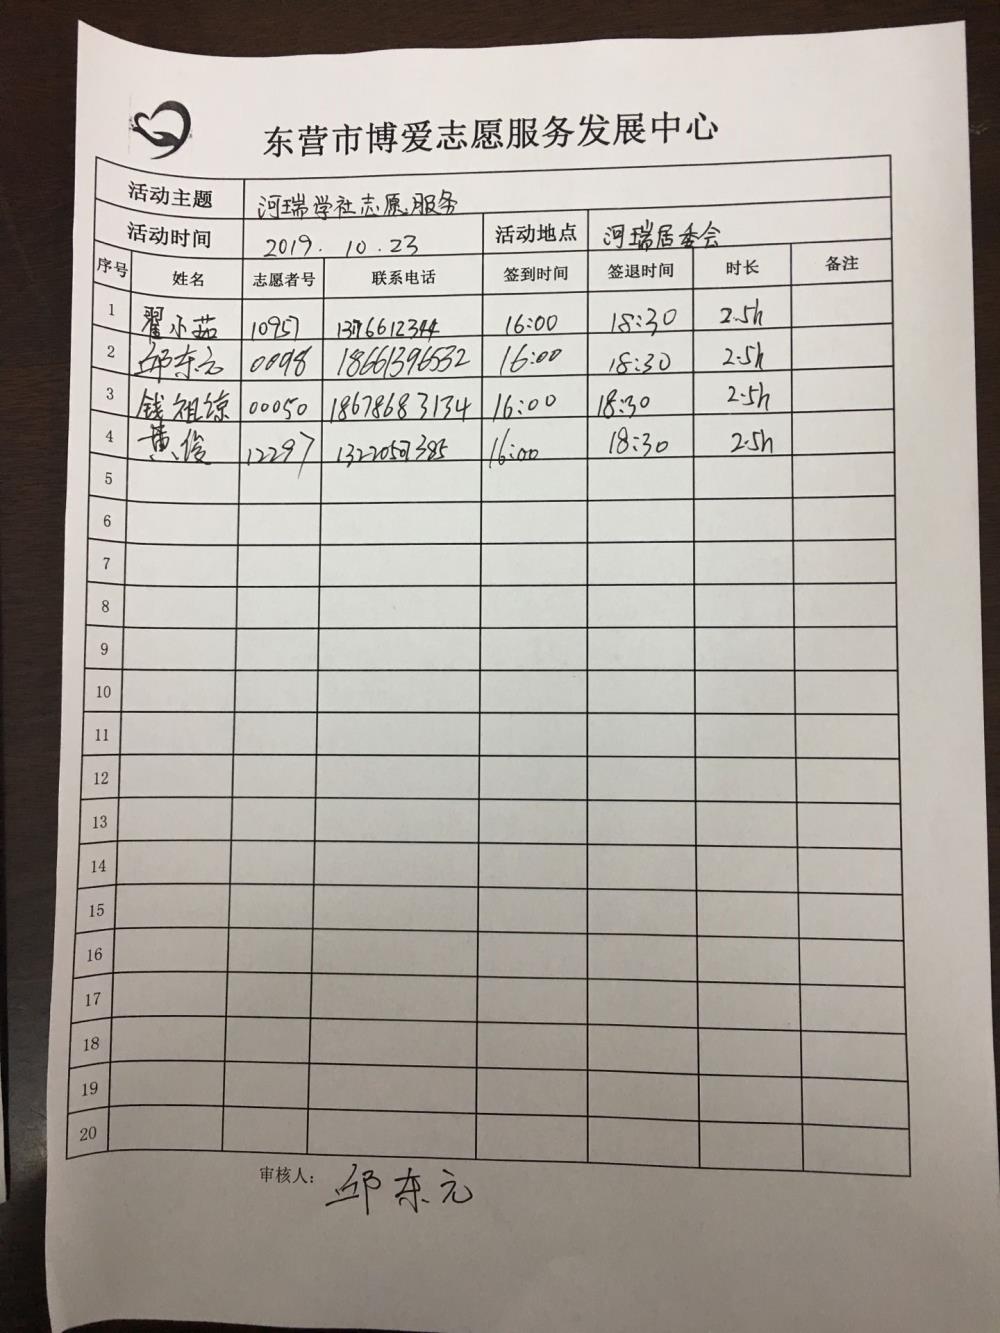 东营市博爱志愿服务发展中心
活动主题 河瑞学社志愿服务
活动时间 2019.10.23 活动地点 河瑞居委会
序号 姓名 志愿者号 联系电话 签到时间 签退时间 时长 备注
1 翟小茹 10957 16:00 18:30 2.5h
2 邱东元 0098 18661396532 16:00 18:30 2.5h
3 钱祖琼 00050 18678683134 16:00 18:30 2.5h
4 黄俊 12297 13220507385 16:00 18:30 2.5h
5
6
7
8
9
10
11
12
13
14
15
16
17
18
19
20
审核人: 邱东元